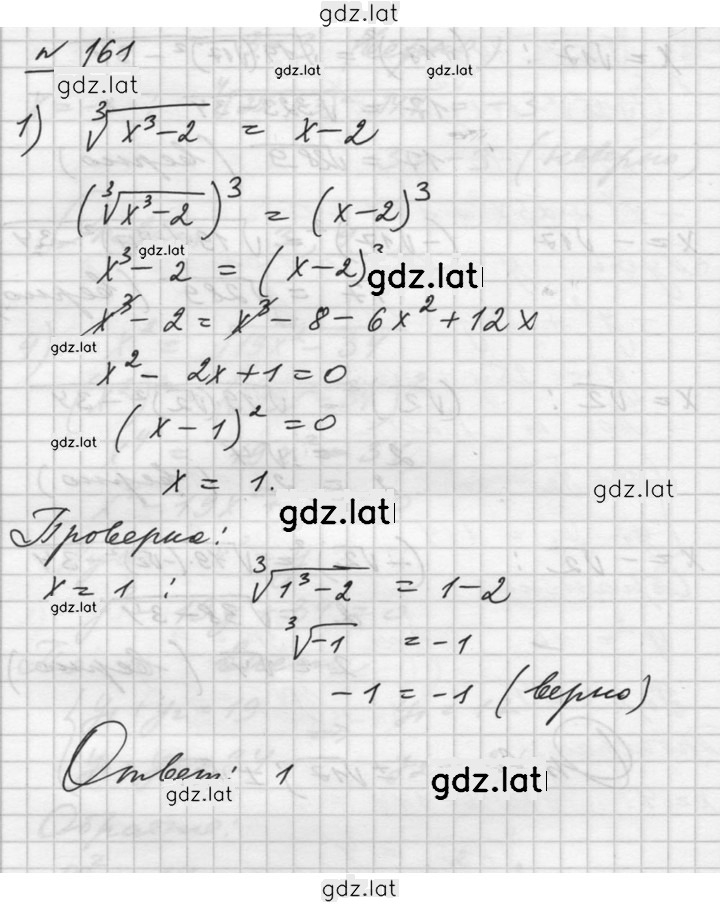 gdz.lat
№ 161
gdz.lat gdz.lat gdz.lat
1) ∛(x³-2) = x-2
(∛(x³-2))³ = (x-2)³
gdz.lat
x³-2 = (x-2)³ gdz.lat
x³-2 = x³-8-6x²+12x
gdz.lat
x²-2x+1=0
(x-1)²=0
gdz.lat
x = 1.
gdz.lat
gdz.lat
Проверка:
x = 1 : ∛(1³-2) = 1-2
gdz.lat
∛-1 = -1
-1 = -1 (верно)
Ответ: 1
gdz.lat gdz.lat
gdz.lat